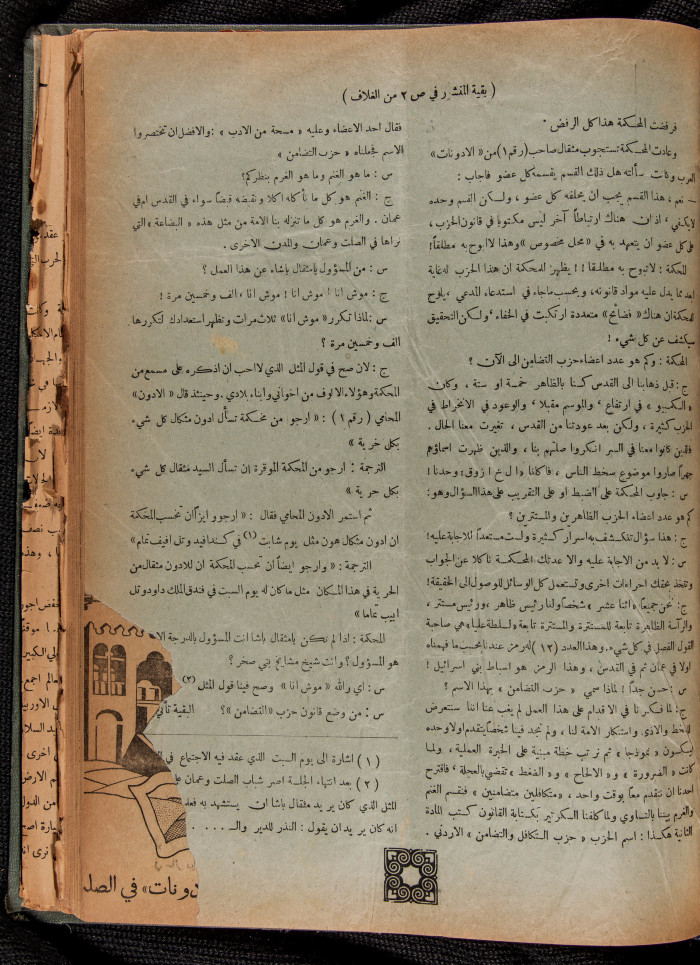 ( بقية المنشور في ص ٢ من الغلاف )
فرفضت المحكمة هذا كل الرفض .
وعادت المحكمة تستجوب مثقال صاحب (رقم ١) من « الادونات»
العرب وثات سألته هل ذلك القسم يقسمه كل عضو فاجاب :
— نعم ، هذا القسم يجب ان يحلفه كل عضو ، ولكن القسم وحده
لا يكفي ، اذ ان هناك ارتباطاً آخر ليس مكتوبا في قانون الحزب ،
على كل عضو ان يتعهد به في « محل مخصوص » وهذا لا ابوح به مطلقاً!
المحكمة : لا تبوح به مطلقا !! يظهر للمحكمة ان هذا الحزب له غاية
ابعد مما يدل عليه مواد قانونه ، وبحسب ما جاء في استدعاء المدعي ، يلوح
للمحكمة ان هناك « فضائح » متعددة ارتكبت في الخفاء ، ولكن التحقيق
سيكشف عن كل شيء !
المحكمة : وكم هو عدد اعضاء حزب التضامن الى الآن ؟
ج : قبل ذهابنا الى القدس كنا بالظاهر خمسة او ستة ، وكان
« الكمبيو » في ارتفاع ' والموسم مقبلا ' والوعود في الانخراط في
الحزب كثيرة ، ولكن بعد عودتنا من القدس ، تغيرت معنا الحال .
فالذين كانوا معنا في السر انكروا صلتهم بنا ، والذين ظهرت اسماؤهم
جهراً صاروا موضوع سخط الناس ، فاكلنا « ال خ ا زوق » وحدنا !
س : جاوب المحكمة على الضبط او على التقريب على هذا السؤال وهو :
كم هو عدد اعضاء الحزب الظاهرين والمستترين ؟
ج : هذا سؤال تنكشف به اسرار كثيرة ولست مستعداً للاجابة عليه!
س : لا بد من الاجابة عليه والا عدتك المحكمة ناكلا عن الجواب
وتتخذ بحقك اجراءات اخرى وتستعمل كل الوسائل للوصول الى الحقيقة!
ج : نحن جميعاً « اثنا عشر » شخصاً ولنا رئيس ظاهر ، ورئيس مستتر ،
والرآسة الظاهرة تابعة للمستترة والمستترة تابعة « لسلطة عليا » هي صاحبة
القول الفصل في كل شيء . وهذا العدد (١٢) له رمز عندنا بحسب ما فهمناه
اولا في عمان ثم في القدس ، وهذا الرمز هو اسباط بني اسرائيل !
س : حسن جداً ! لماذا سمي « حزب التضامن » بهذا الاسم ؟
ج : لما فكرنا في الاقدام على هذا العمل لم يغب عنا اننا سنتعرض
للخط والاذى واستنكار الامة لنا ، ولم نجد فينا شخصاً يتقدم اولا وحده
ليكون « نموذجاً » ثم نرتب خطة مبنية على الخبرة العملية ، ولما
كانت « الضرورة » و« الالحاح » و« الضغط » تقضي بالعجلة ' فاقترح
احدنا ان نتقدم معاً بوقت واحد ، « متكافلين متضامنين » فنقسم الغنم
والغرم بيننا بالتساوي ولما كلفنا السكرتير بكتابة القانون كتب المادة
الثانية هكذا : اسم الحزب « حزب التكافل والتضامن » الاردني .
فقال احد الاعضاء وعليه « مسحة من الادب » : والافضل ان تختصروا
الاسم فجعلناه « حزب التضامن »
س : ما هو الغنم وما هو الغرم بنظركم ؟
ج : الغنم هو كل ما نأكله اكلا ونقبضه قبضاً سواء في القدس ام في
عمان . والغرم هو كل ما تنزله بنا الامة من مثل هذه « البضاعة » التي
نراها في الصلت وعمان والمدن الاخرى .
س : من المسؤول يا مثقال باشا عن هذا العمل ؟
ج : موش انا ! موش انا ! موش انا ، الف وخمسين مرة !
س : لماذا تكرر « موش انا » ثلاث مرات وتظهر استعدادك لتكررها
الف وخمسين مرة ؟
ج : لان صح في قول المثل الذي لا احب ان اذكره على مسمع من
المحكمة وهؤلاء الالوف من اخواني وابناء بلادي . وحينئذ قال « الادون»
المحامي ( رقم ١ ) : « ارجو من محكمة تسأل ادون متكال كل شيء
بكل خرية »
الترجمة : ارجو من المحكمة الموقرة ان تسأل السيد مثقال كل شيء
بكل حرية »
ثم استمر الادون المحامي فقال : « ارجو و ايزاً ان تحسب المحكمة
ان ادون متكال هون مثل يوم شابت (١) في كندافيد وتل افيف تمام »
الترجمة : « وارجو ايضاً ان تحسب المحكمة ان للادون مثقال من
الحرية في هذا المكان مثل ما كان له يوم السبت في فندق الملك داود وتل
ابيب تماما »
المحكمة : اذا لم تكن يا مثقال باشا انت المسؤول بالدرجة الا
هو المسؤول ؟ وانت شيخ مشايخ بني صخر ؟
س : اي والله « موش انا » وصح فينا قول المثل (٢)
س : من وضع قانون حزب « التضامن » ؟ البقية تأتي
( ١ ) اشارة الى يوم السبت الذي عقد فيه الاجتماع في
( ٢ ) بعد انتهاء الجلسة اصر شباب الصلت وعمان على
المثل الذي كان يريد مثقال باشا ان يستشهد به فعلـ
انه كان يريد ان يقول : النذر للدير والـ . . . .
دونات» في الصلـ